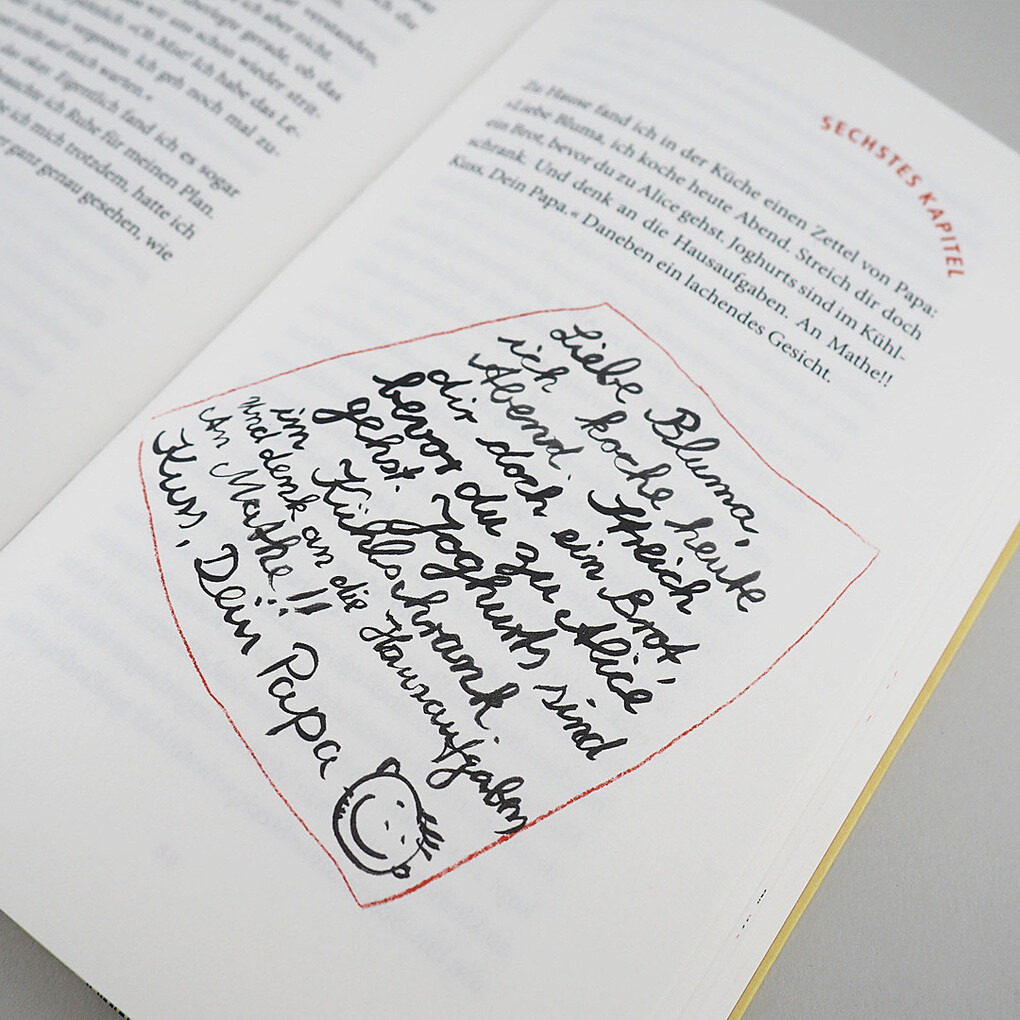 verstanden,
aber nicht.
überlegte gerade, ob das
wir uns schon wieder strit-
plötzlich »Oh Mist! Ich habe das Le-
buch vergessen. Ich geh noch mal zu-
nicht auf mich warten.«
das okay. Eigentlich fand ich es sogar
brauchte ich Ruhe für meinen Plan.
ich mich trotzdem, hatte ich
ganz genau gesehen, wie
SECHSTES KAPITEL
Zu Hause fand ich in der Küche einen Zettel von Papa:
»Liebe Bluma, ich koche heute Abend. Streich dir doch
ein Brot, bevor du zu Alice gehst. Joghurts sind im Kühl-
schrank. Und denk an die Hausaufgaben. An Mathe!!
Kuss, Dein Papa.« Daneben ein lachendes Gesicht.
Liebe Bluma,
ich koche heute
Abend. Streich
dir doch ein Brot,
bevor du zu Alice
gehst. Joghurts sind
im Kühlschrank.
Und denk an die Hausaufgaben
An Mathe!!
Kuss, Dein Papa